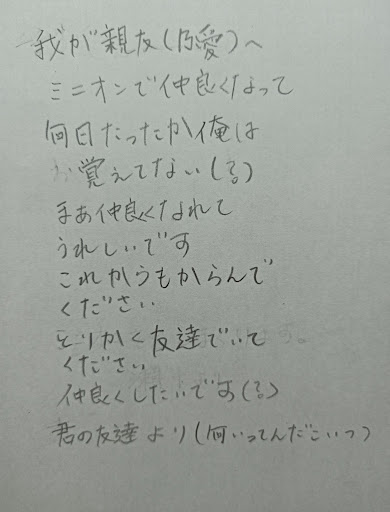 我が親友(乃愛)へ
ミニオンで仲良くなって
何日たったか俺は
覚えてない(?)
まあ仲良くなれて
うれしいです
これからもからんで
ください
とりかく友達でいて
ください
仲良くしたいです(?)
君の友達より(何いってんだこいつ)